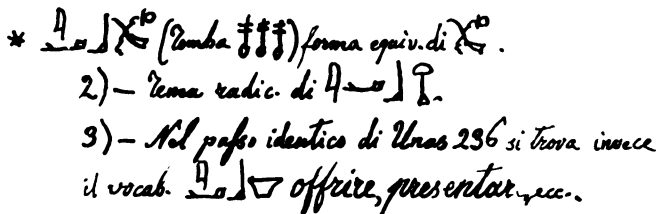 * (Tomba 𓄤𓄤𓄤) forma equiv. di .
2) — Tema radic. di .
3) — Nel passo identico di Unas 236 si trova invece
il vocab. offrire, presentar, ecc..